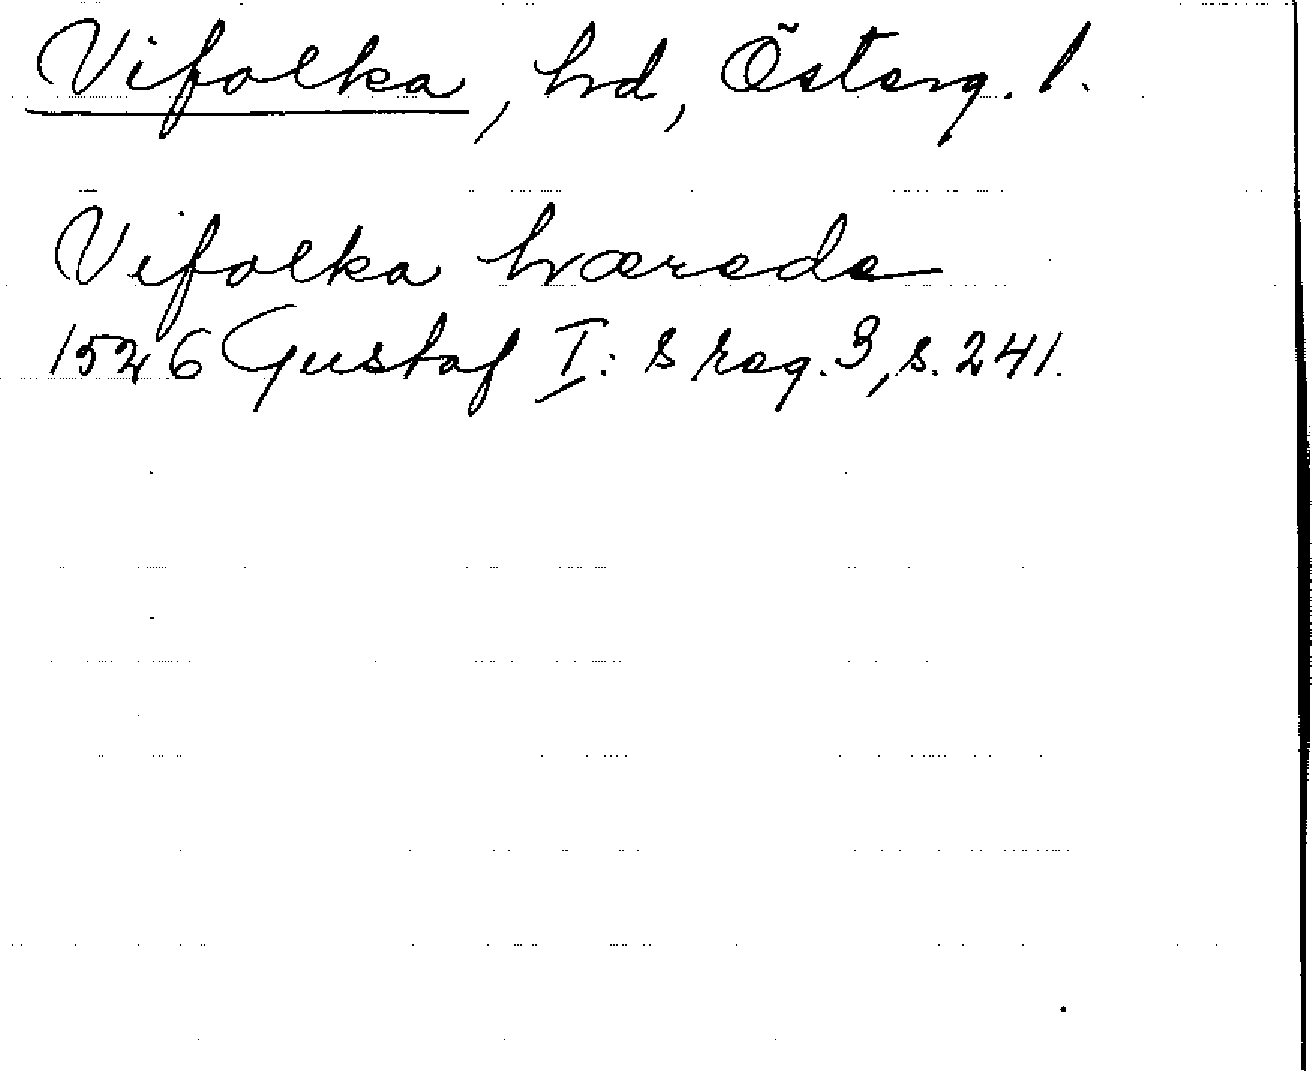 Vifolka, hd, Österg. l.
Vifolka hærede
1526 Gustaf I: s reg. 3, s. 241.